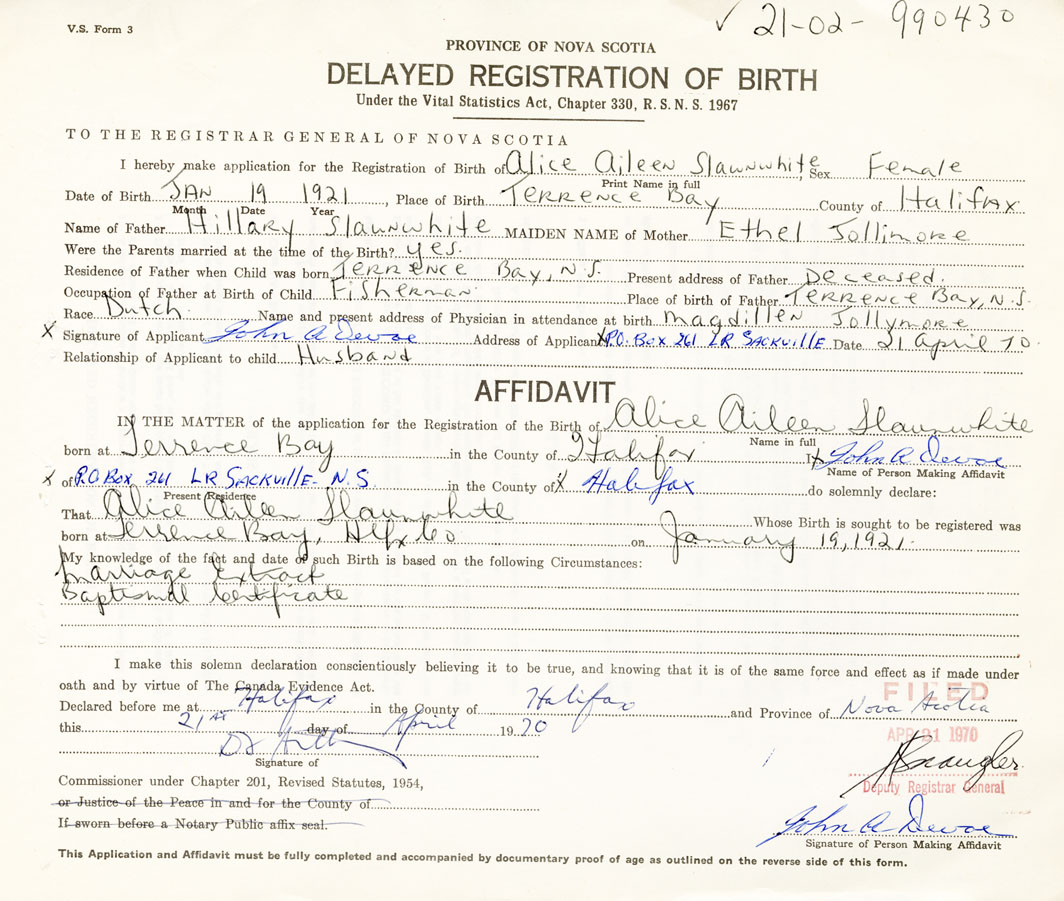 V.S. Form 3
✓ 21-02-990430
PROVINCE OF NOVA SCOTIA
DELAYED REGISTRATION OF BIRTH
Under the Vital Statistics Act, Chapter 330, R.S.N.S. 1967
TO THE REGISTRAR GENERAL OF NOVA SCOTIA
I hereby make application for the Registration of Birth of Alice Aileen Slawnwhite, Sex Female
Print Name in full
Date of Birth JAN 19 1921, Place of Birth Terrence Bay County of Halifax
Month Date Year
Name of Father Hillary Slaunwhite MAIDEN NAME of Mother Ethel Jollimore
Were the Parents married at the time of the Birth? yes.
Residence of Father when Child was born Terrence Bay, N.S. Present address of Father Deceased.
Occupation of Father at Birth of Child Fisherman Place of birth of Father Terrence Bay, N.S.
Race Dutch Name and present address of Physician in attendance at birth Magdillen Jollymore
X Signature of Applicant John A Devoe Address of Applicant X P.O. Box 261 LR SACKVILLE Date 21 April 70
Relationship of Applicant to child Husband
AFFIDAVIT
IN THE MATTER of the application for the Registration of the Birth of Alice Aileen Slaunwhite
Name in full
born at Terrence Bay in the County of Halifax I X John A Devoe
Name of Person Making Affidavit
X of P.O. Box 261 LR SACKVILLE N.S. in the County of X Halifax do solemnly declare:
Present Residence
That Alice Aileen Slaunwhite Whose Birth is sought to be registered was
born at Terrence Bay, Hlfx Co on January 19, 1921.
My knowledge of the fact and date of such Birth is based on the following Circumstances:
Marriage Extract
Baptismal Certificate
I make this solemn declaration conscientiously believing it to be true, and knowing that it is of the same force and effect as if made under
oath and by virtue of The Canada Evidence Act.
Declared before me at Halifax in the County of Halifax and Province of Nova Scotia
this 21st day of April 1970
FILED
APR 21 1970
Signature of
Deputy Registrar General
Commissioner under Chapter 201, Revised Statutes, 1954,
or Justice of the Peace in and for the County of
If sworn before a Notary Public affix seal.
John A Devoe
Signature of Person Making Affidavit
This Application and Affidavit must be fully completed and accompanied by documentary proof of age as outlined on the reverse side of this form.